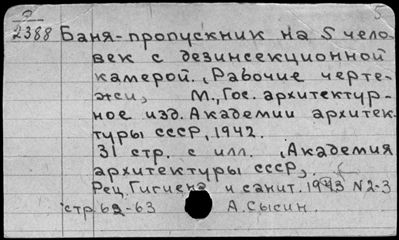 5
2388 Баня-пропускник на 5 чело-
век с дезинсекционной
камерой. (Рабочие черте-
жи), М., Гос. архитектур-
ное изд. Академии архитек-
туры СССР, 1942.
31 стр. с илл. (Академия
архитектуры СССР).
Рец. Гигиена и санит. 1943 N2-3
стр. 62-63 А. Сысин.